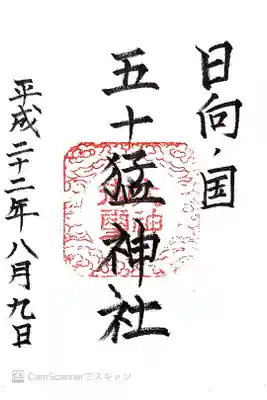 日向、国
五十猛神社
平成二十二年八月九日
CamScannerでスキャン